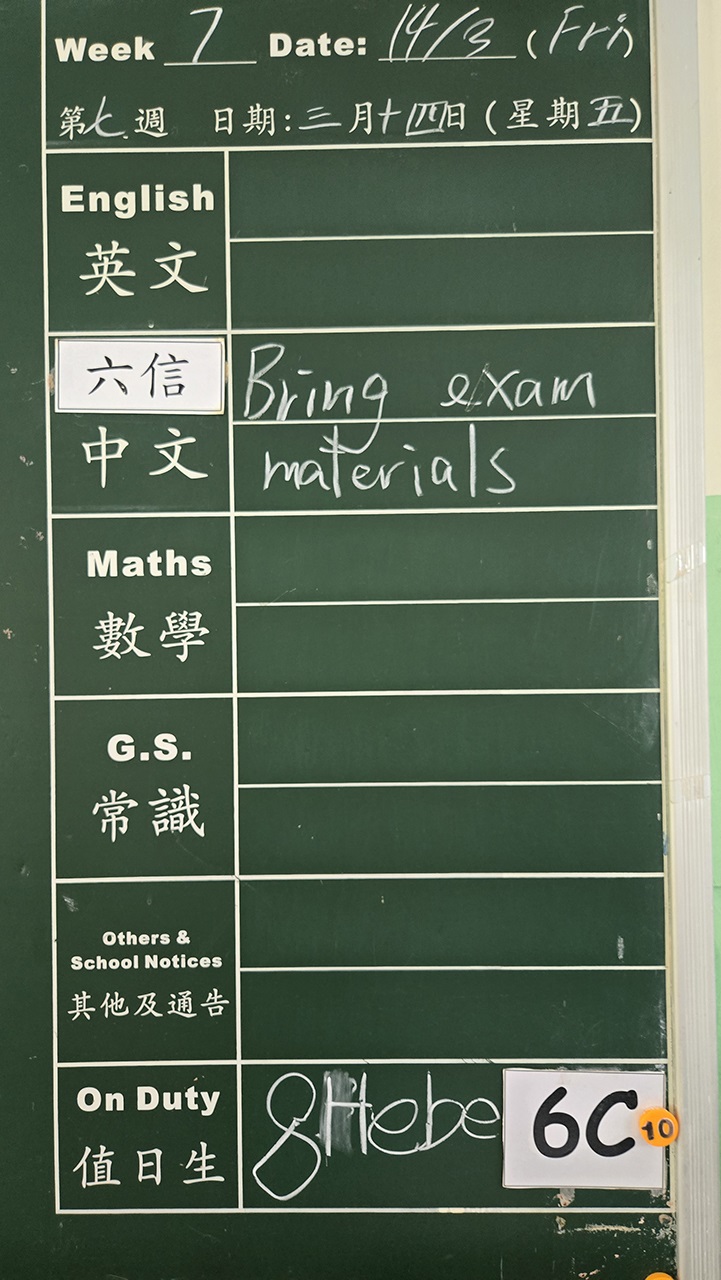 Week 7 Date: 14/3 (Fri)
第七週 日期:三月十四日(星期五)
English
英文
六信
Bring exam
中文
materials
Maths
數學
G.S.
常識
Others &
School Notices
其他及通告
On Duty
值日生
8 Hebe
6C
10